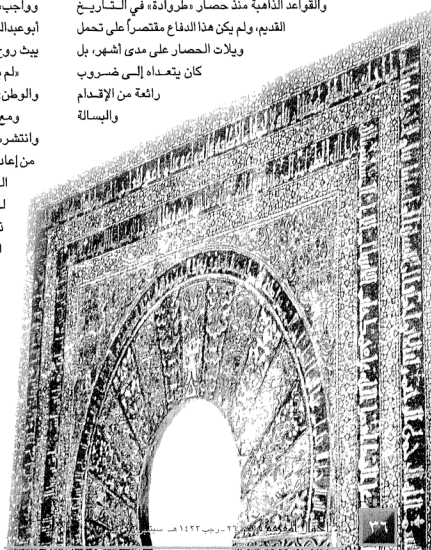 والقواعد الذاهبة منذ حصار «طروادة» في التـاريـخ
القديم، ولم يكن هذا الدفاع مقتصراً على تحمل
ويلات الحصار على مدى أشهر، بل
كان يتعـداه إلـى ضـروب
رائعة من الإقـدام
والبسالة
وواجب،
أبو عبدالله
يبث روح
«لم
والوطن،
ومع
وانتشر
من إعاد
رجب ١٤٢٣ هـ
٣٦